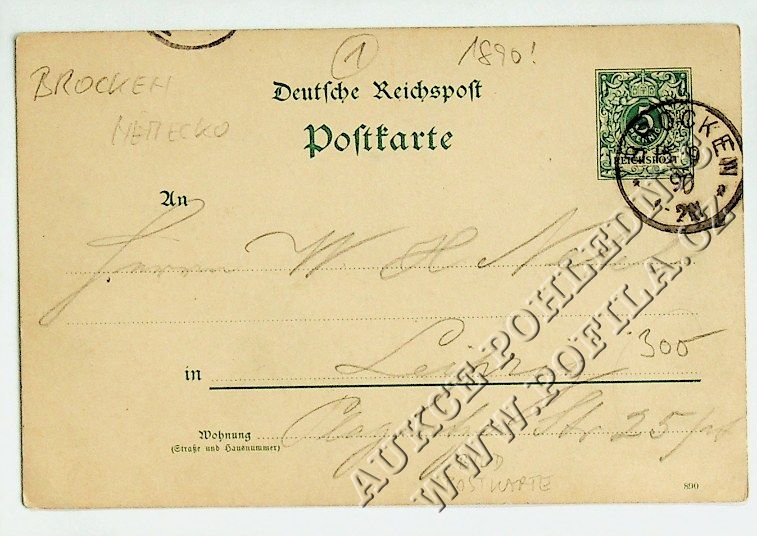 1
1890!
BROCKEN
NĚMECKO
Deutsche Reichspost
Postkarte
5
REICHSPOST
BROCKEN
9
90
An
Herrn W H
300
in
Wohnung
(Straße und Hausnummer)
Str. 25
POSTKARTE
890
AUKCE POHLEDNIC
WWW.POFILA.CZ